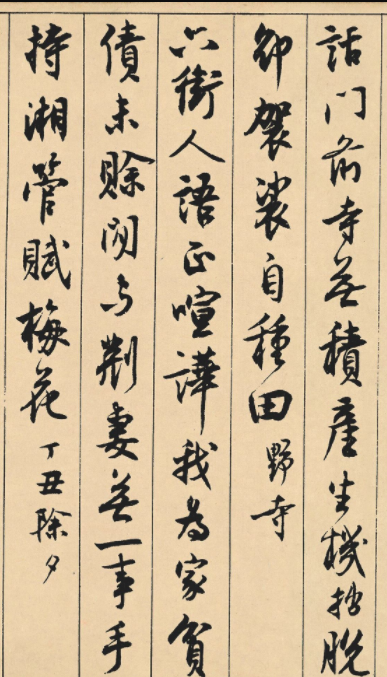 話門前寺無積產生機拙脫
卻袈裟自種田 野寺
六街人語正喧譁我為家貧
債未賒閒與荆妻無一事手
持湘管賦梅花 丁丑除夕